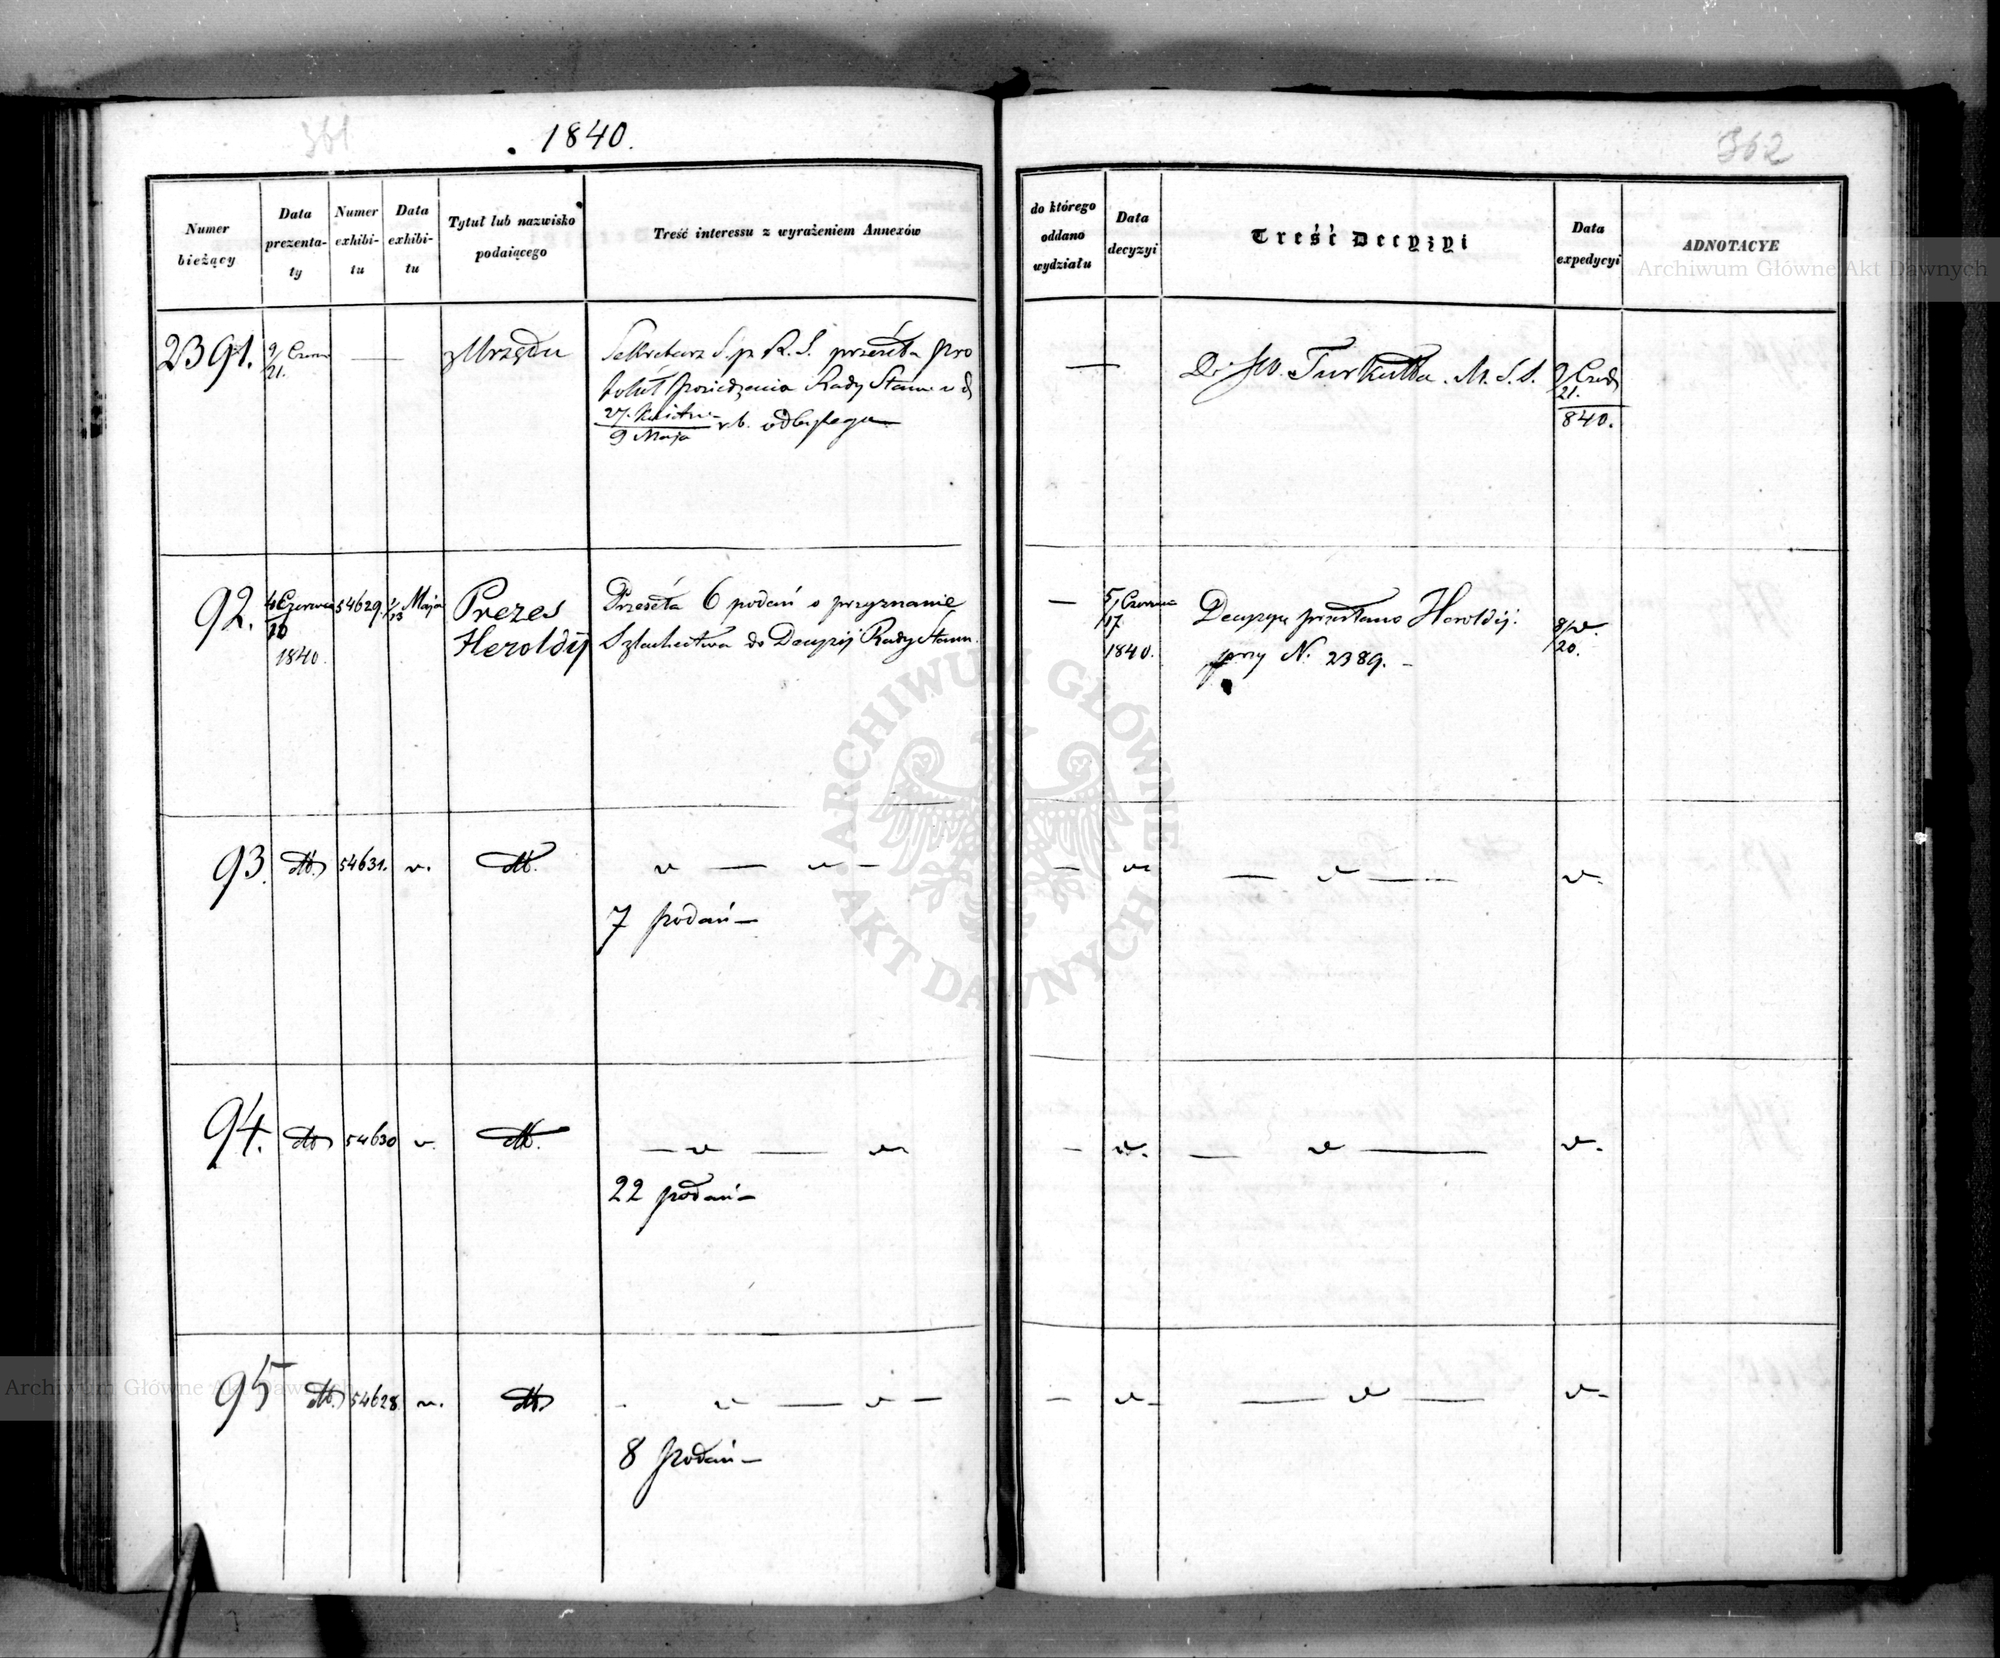 361
1840.
362
Numer bieżący
Data prezenta-ty
Numer exhibi-tu
Data exhibi-tu
Tytuł lub nazwisko podaiącego
Treść interessu z wyrażeniem Annexów
do którego oddano wydziału
Data decyzyi
Treść Decyzyi
Data expedycyi
ADNOTACYE
2391.
9/21. Czerw
—
z Urzędu
Sekretarz S. pr R. S. przeséła pro
tokuł posiedzenia Rady Stanu v d
27. Kwietn / 9 Maja r. b. odbytego
—
Do JW. Turkułła. M. S. S.
9 Czer / 21. / 840.
92.
Czerwca
1840.
54629.
1/13 Maja
Prezes
Heroldij
Przeséła 6 podań o przyznanie
Szlachectwa do Decyzij Rady Stanu.
—
5/17 Czerwca
1840.
Decyzye przesłano Heroldij.
przy N. 2389. –
8/20. v.
93.
dto
54631.
v.
dto.
v — v —
7 podań —
—
v
— v —
v.
94.
dto
54630
v.
dto.
— v — v
22 podań —
–
v.
— v —
v.
95
dto
54628.
v.
dto
v — v —
8 podań —
–
v –
— v —
v –
Archiwum Główne Akt Dawnych
ARCHIWUM GŁÓWNE
AKT DAWNYCH
Archiwum Główne Akt Dawnych